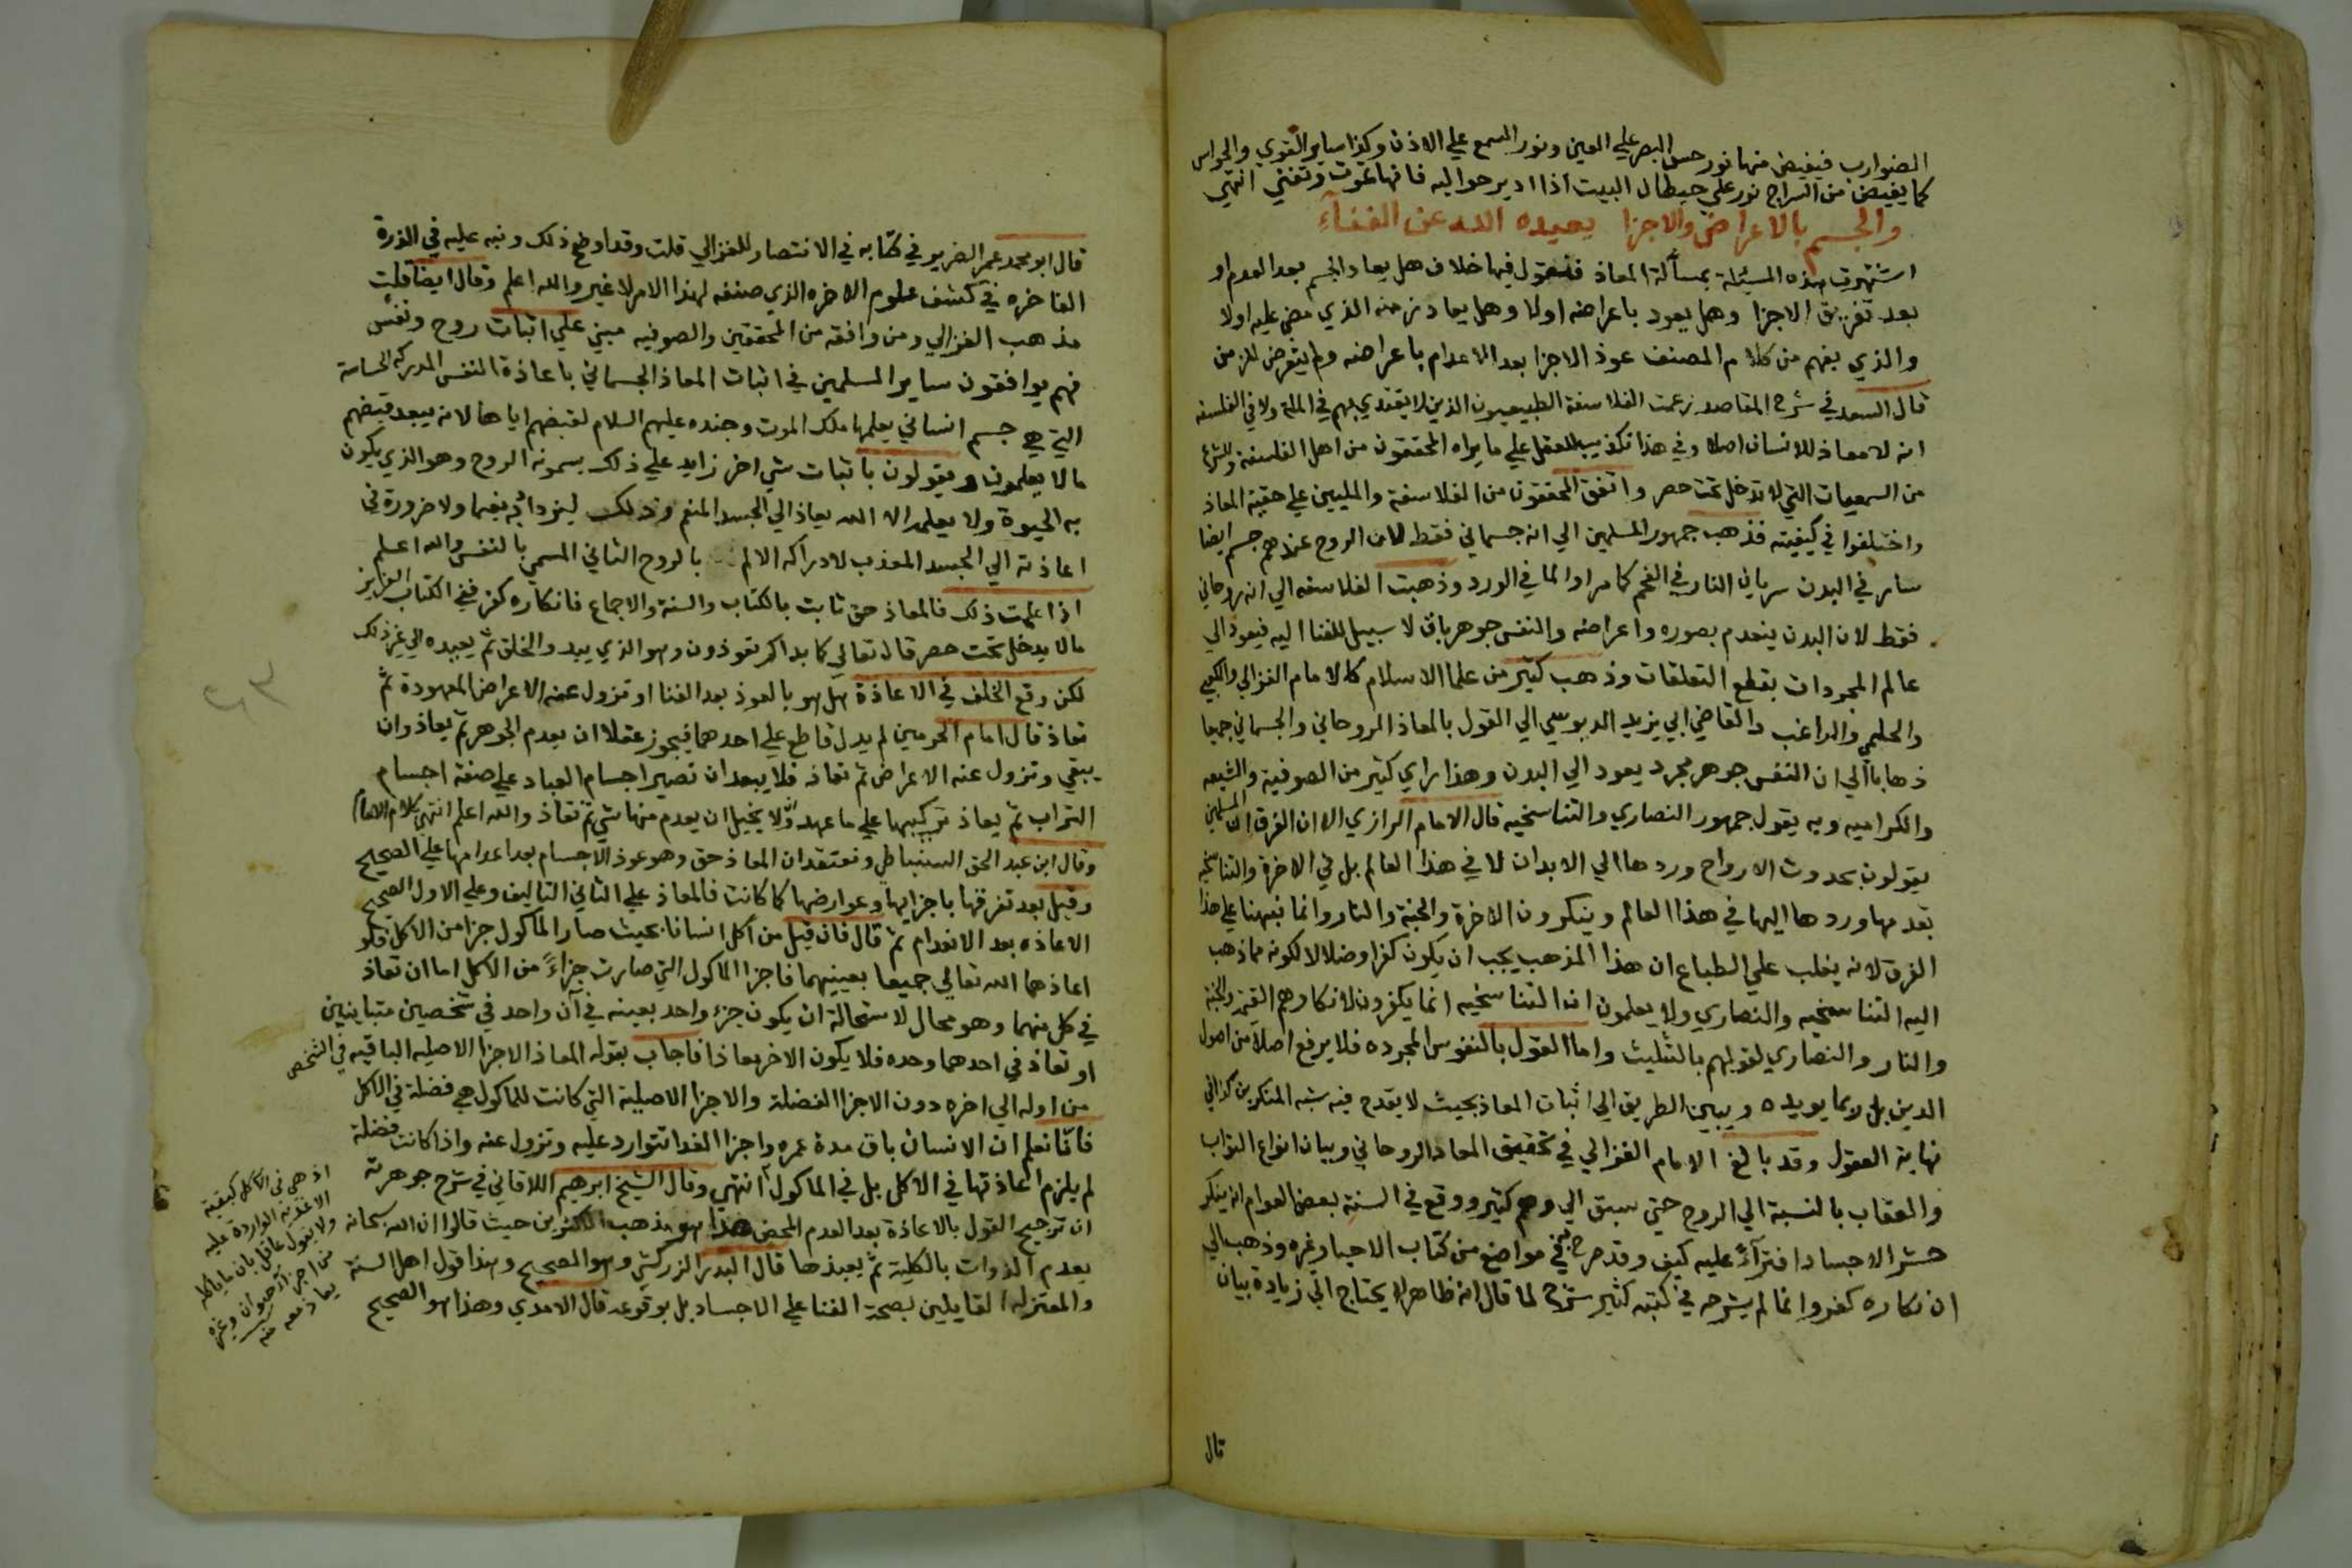 الضوارب فيفيض منها نور حس البصر علي العين ونور السمع علي الاذن وكذا ساير القوي والحواس
كما يفيض من السراج نور علي حيطان البيت اذا ادير حواليه فانها تموت وتفني انتهي
والجسم بالاعراض والاجزا يعيده الله عن الفنآء
اشتهرت هذه المسئلة بمسألة المعاذ فنقول فيها خلاف هل يعاد الجسم بعد العدم او
بعد تفريق الاجزا وهل يعود باعراضه اولا وهل يعاد زمنه الذي مضي عليه اولا
والذي يفهم من كلام المصنف عوذ الاجزا بعد الاعدام باعراضه ولم يتعرض للزمن
قال السعد في شرح المقاصد زعمت الفلاسفة الطبيعيون الذين لا يقتدي بهم في الملة ولا في الفلسفه
انه لا معاذ للانسان اصلا وفي هذا تكذيب للعقل علي ما يراه المحققون من اهل الفلسفة وللشرع
من السمعيات التي لا تدخل تحت حصر واتفق المحققون من الفلاسفة والمليين علي حقية المعاذ
واختلفوا في كيفيته فذهب جمهور المسلمين الي انه جسماني فقط لان الروح عندهم جسم ايضا
سار في البدن سريان النار في الفحم كما مر او الما في الورد وذهبت الفلاسفه الي انه روحاني
فقط لان البدن ينعدم بصوره واعراضه والنفس جوهر باق لا سبيل للفنا اليه فيعود الي
عالم المجردات بقطع التعلقات وذهب كثير من علما الاسلام كالامام الغزالي والكعبي
والحليمي والراغب والقاضي ابي يزيد الدبوسي الي القول بالمعاذ الروحاني والجسماني جميعا
ذهابا الي ان النفس جوهر مجرد يعود الي البدن وهذا راي كثير من الصوفية والشيعه
والكراميه وبه يقول جمهور النصاري والتناسخيه قال الامام الرازي الا ان الفرق ان المسلمين
يقولون بحدوث الارواح وردها الي الابدان لا في هذا العالم بل في الاخرة والتناسخيه
بقدمها وردها اليها في هذا العالم وينكرون الاخرة والجنة والنار وانما نبهنا علي هذا
الفرق لانه يغلب علي الطباع ان هذا المذهب يجب ان يكون كفرا وضلالا لكونه مما ذهب
اليه التناسخيه والنصاري ولا يعلمون ان التناسخيه انما يكفرون لانكارهم القيمة والجنة
والنار والنصاري لقولهم بالتثليث واما القول بالنفوس المجرده فلا يرفع اصلا من اصول
الدين بل ربما يويده ويبين الطريق الي اثبات المعاذ بحيث لا يقدح فيه شبه المنكرين كذا في
نهاية العقول وقد بالغ الامام الغزالي في تحقيق المعاد الروحاني وبيان انواع الثواب
والعقاب بالنسبة الي الروح حتي سبق الي وهم كثير ووقع في السنة بعض العوام انه ينكر
حشر الاجساد افترآءً عليه كيف وقد صرح في مواضع من كتاب الاحيا وغره وذهب الي
ان نكاره كفر وانما لم يشرحه في كتبه كثير شرح لما قال انه ظاهر لا يحتاج الي زيادة بيان
قال
قال ابو محمد عمر الضرير في كتابه في الانتصار للغزالي قلت وقد اوضح ذلك ونبه عليه في الذرة
الفاخره في كشف علوم الاخره الذي صنفه لهذا الامر لا غير والله اعلم وقال ايضا قلت
مذهب الغزالي ومن وافقه من المحققين والصوفيه مبني علي اثبات روح ونفس
فهم يوافقون ساير المسلمين في اثبات المعاذ الجسماني باعاذة النفس المدركه الحساسة
التي هي جسم انساني يعلمها ملك الموت وجنده عليهم السلام لقبضهم اياها لانه يبعد قبضهم
ما لا يعلمون ويقولون باثبات شي اخر زايد علي ذلك يسمونه الروح وهو الذي يكون
به الحيوة ولا يعلمه الا الله يعاذ الي الجسد المنعم وذلك ليزداد به نعيما ولا ضرورة في
اعاذته الي الجسد المعذب لادراكه الالم بالروح الثاني المسمي بالنفس والله اعلم
اذا علمت ذلك فالمعاذ حق ثابت بالكتاب والسنة والاجماع فانكاره كفر ففي الكتاب العزيز
ما لا يدخل تحت حصر قال تعالي كما بداكم تعوذون وهو الذي يبد والخلق ثم يعيده الي غير ذلك
لكن وقع الخلف في الاعاذة هل هو بالعوذ بعد الفنا او تزول عنه الاعراض المعهودة ثم
تعاذ قال امام الحرمين لم يدل قاطع علي احدهما فيجوز عقلا ان يعدم الجوهر ثم يعاذ وان
يبقي وتزول عنه الاعراض ثم تعاذ فلا يبعد ان تصير اجسام العباد علي صفة اجسام
التراب ثم يعاذ تركيبها علي ما عهد ولا يحيل ان يعدم منها شي ثم تعاذ والله اعلم انتهي كلام الامام
وقال ابن عبد الحق السنباطي ونعتقد ان المعاذ حق وهو عوذ الاجسام بعد اعدامها علي الصحيح
وقيل بعد تفرقها باجزايها وعوارضها كما كانت فالمعاذ علي الثاني التاليف وعلي الاول الصحيح
الاعاذه بعد الانعدام ثم قال فان قيل من اكل انسانا بحيث صار الماكول جزا من الاكل فلو
اعاذهما الله تعالي جميعا بعينيهما فاجزا الماكول التي صارت جزاءً من الاكل اما ان تعاذ
في كل منهما وهو محال لاستحالة ان يكون جزء واحد بعينه في آن واحد في شخصين متباينين
او تعاذ في احدهما وحده فلا يكون الاخر معاذا فاجاب بقوله المعاذ الاجزا الاصليه الباقيه في الشخص
من اوله الي اخره دون الاجزا الفضلة والاجزا الاصلية التي كانت للماكول هي فضلة في الاكل
فانا نعلم ان الانسان باق مدة عمره واجزا الغذا تتوارد عليه وتزول عنه واذا كانت فضلة
لم يلزم اعاذتها في الاكل بل في الماكول انتهي وقال الشيخ ابرهيم اللاقاني في شرح جوهرته
ان ترجيح القول بالاعاذة بعد العدم المحض هذا هو مذهب الاكثرين حيث قالوا ان الله سبحانه
يعدم الذوات بالكلية ثم يعيذها قال البدر الزركشي وهو الصحيح وهذا قول اهل السنة
والمعتزلة القايلين بصحة الفنا علي الاجساد بل بوقوعه قال الامدي وهذا هو الصحيح
اذ هي في الاكل كبقية
الاغذيه الواردة عليه
ولا يقول عاقل بان ما ياكله
من اجزآء حيوان وغيره
يعاذ معه منه